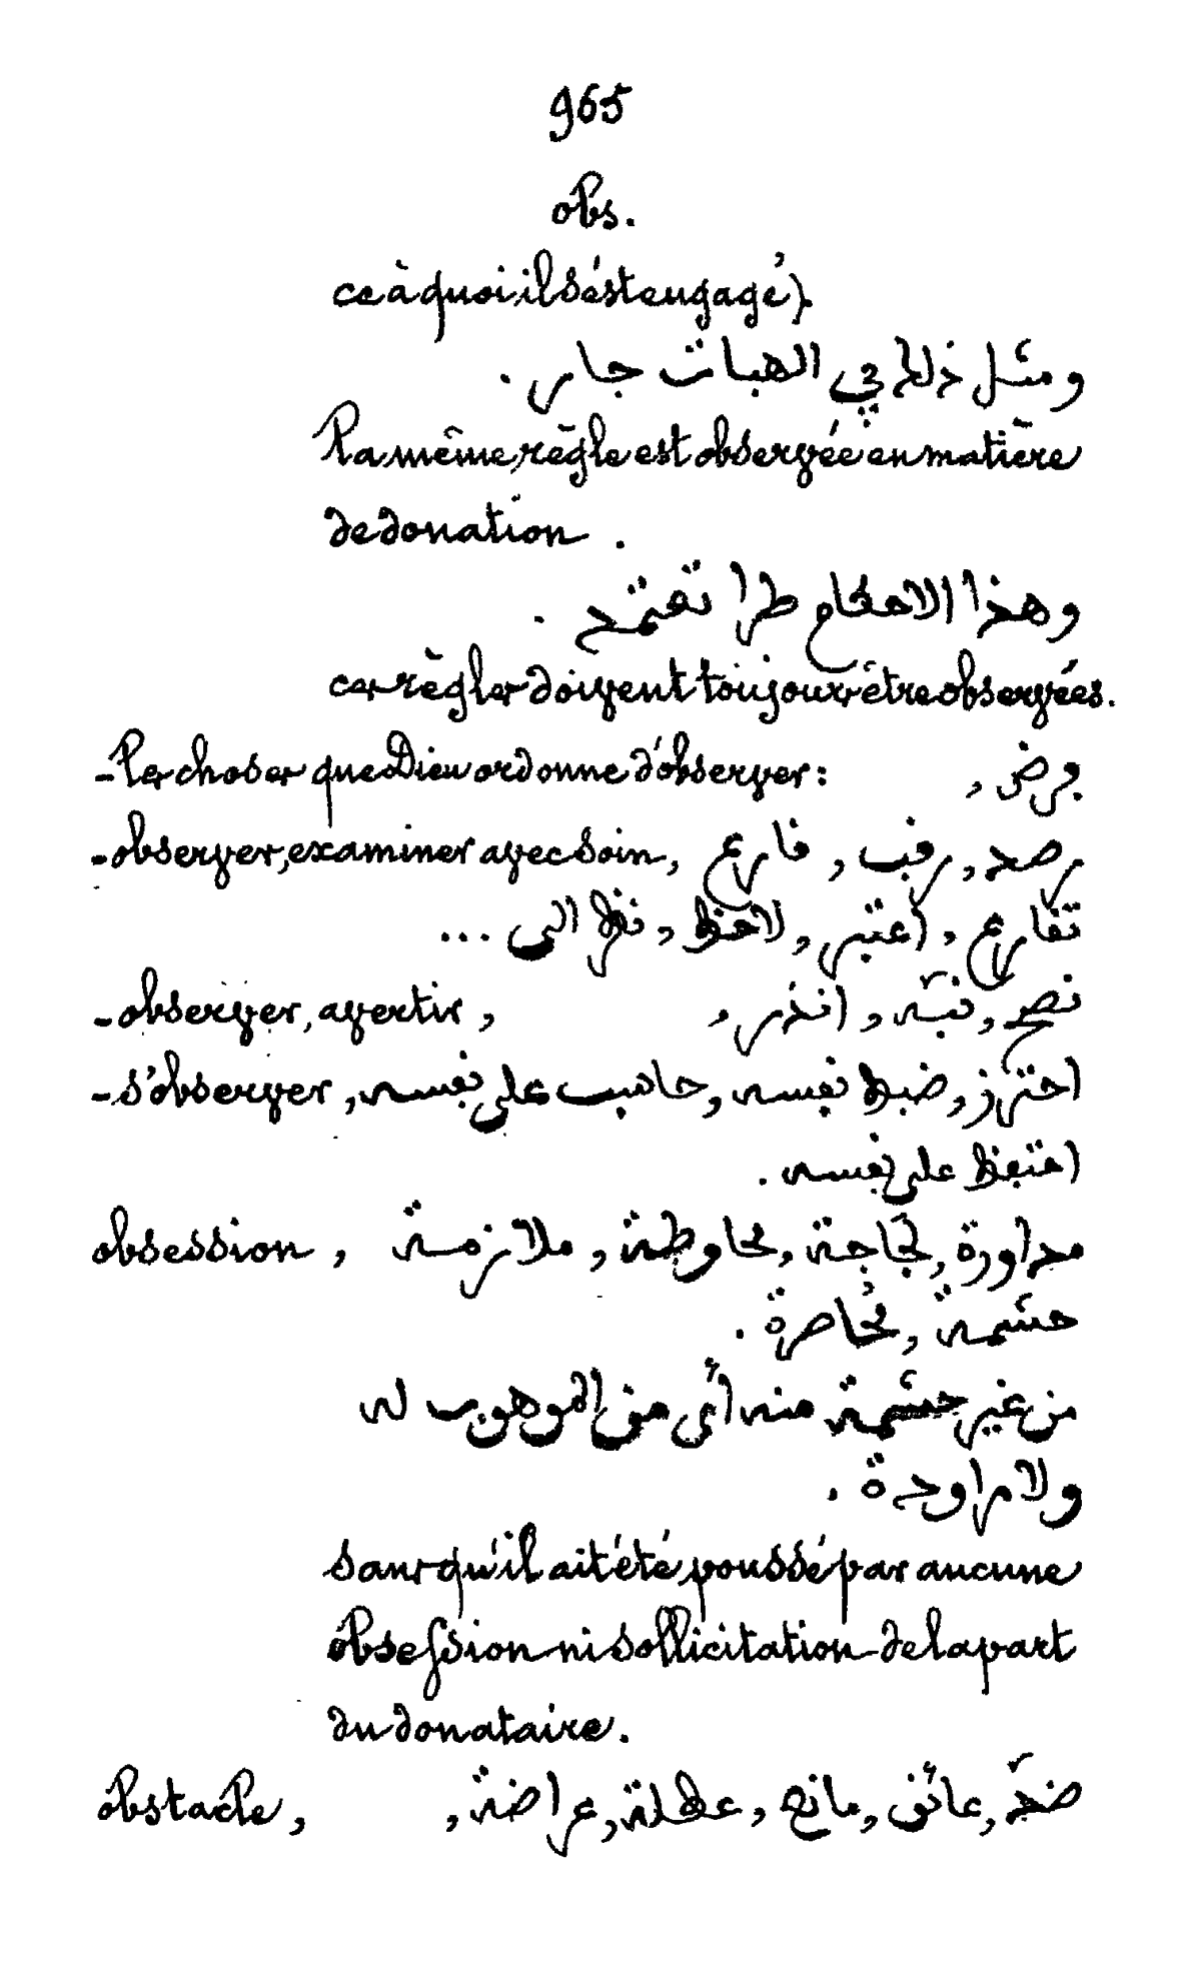 965
obs.
ce à quoi il s'est engagé).
ومثل ذلك في الهبات جار.
la même règle est observée en matière
de donation.
وهذا الاحكام طرا تقتمح.
ces règles doivent toujours être observées.
- les choses que Dieu ordonne d'observer: فرض,
- observer, examiner avec soin, رصد, رقب, قارع
تقارع, اعتبر, لاحظ, نظر الى ...
- observer, avertir, نصح, نبّه, انذر,
- s'observer, احترز, ضبط نفسه, حاسب على نفسه,
احتفظ على نفسه.
obsession, مداورة, لجاجة, محاوطة, ملازمة
حشمة, مُحاصرة.
من غير حشمة منه أي من الموهوب له
ولا مراودة.
sans qu'il ait été poussé par aucune
obsession ni sollicitation de la part
du donataire.
obstacle, ضدّ, عائق, مانع, عطلة, عراضة,